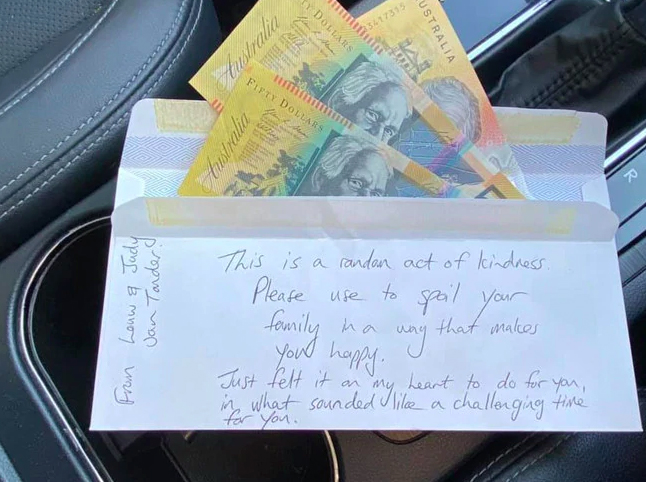 FIFTY DOLLARS
Australia
AUSTRALIA
FIFTY DOLLARS
Australia
From Louw & Judy
Van Tonder!
This is a randon act of kindness.
Please use to spoil your
family in a way that makes
you happy.
Just felt it on my heart to do for you,
in what sounded like a challenging time
for you.
R